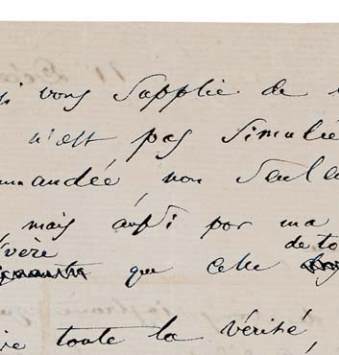 vous supplie de
n'est pas simulée
mandée, non seule
mais aussi por ma
vère de to
que cele
toute la vérité,